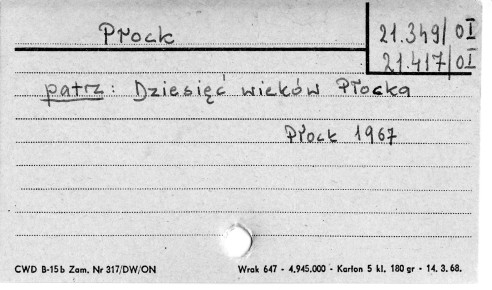 Płock
21.349/OI
21.417/OI
patrz: Dziesięć wieków Płocka
Płock 1967
CWD B-15b Zam. Nr 317/DW/ON
Wrak 647 - 4.945.000 - Karton 5 kl. 180 gr - 14. 3. 68.